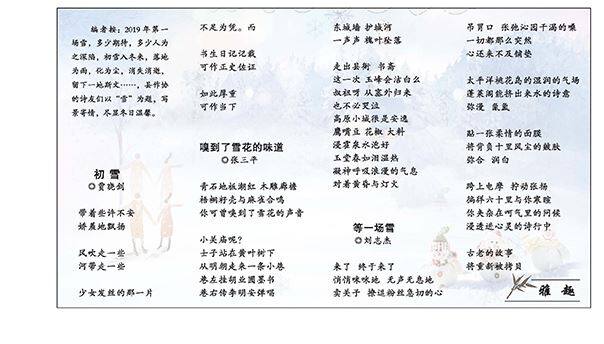 编者按：2019年第一
场雪，多少期待，多少人为
之深陷，初雪入冬来，落地
为雨，化为尘，消失消逝，
留下一地斯文……，县作协
的诗友们以“雪”为题，写
景寄情，尽显冬日温馨。
初 雪
◎贾晓剑
带着些许不安
娇羞地飘扬
风吹走一些
河带走一些
少女发丝的那一片
不足为凭。而
书生日记记载
可作正史佐证
如此厚重
可作当下
嗅到了雪花的味道
◎张三平
青石地板潮红 木雕廊檐
梧桐籽壳与麻雀合鸣
你可曾嗅到了雪花的声音
小关庙呢？
士子站在黄叶树下
从明朝走来一条小巷
巷左挂胡业圆墨书
巷右传李明安弹唱
东城墙 护城河
一声声 槐叶坠落
走出县衙 书斋
这一次 玉峰会洁白么
叔祖呀 从塞外归来
也不必哭泣
高原小城很是安逸
鹰嘴豆 花椒 大料
浸霍泉水泡好
玉堂春如泪温热
凝神呼吸浪漫的气息
对着黄昏与灯火
等一场雪
◎刘志杰
来了 终于来了
悄悄咪咪地 无声无息地
卖关子 撩逗粉丝急切的心
吊胃口 张弛沁园干渴的嗓
一切都那么突然
心还来不及铺垫
太平洋桃花岛的温润的气场
蓬莱阁能挤出来水的诗意
弥漫 氤氲
贴一张柔情的面膜
将背负十里风尘的皴肤
弥合 润白
跨上电摩 拧动张扬
徜徉六十里与你寒暄
你夹杂在呵气里的问候
浸透进心灵的诗行中
古老的故事
将重新被拷贝
雅 趣